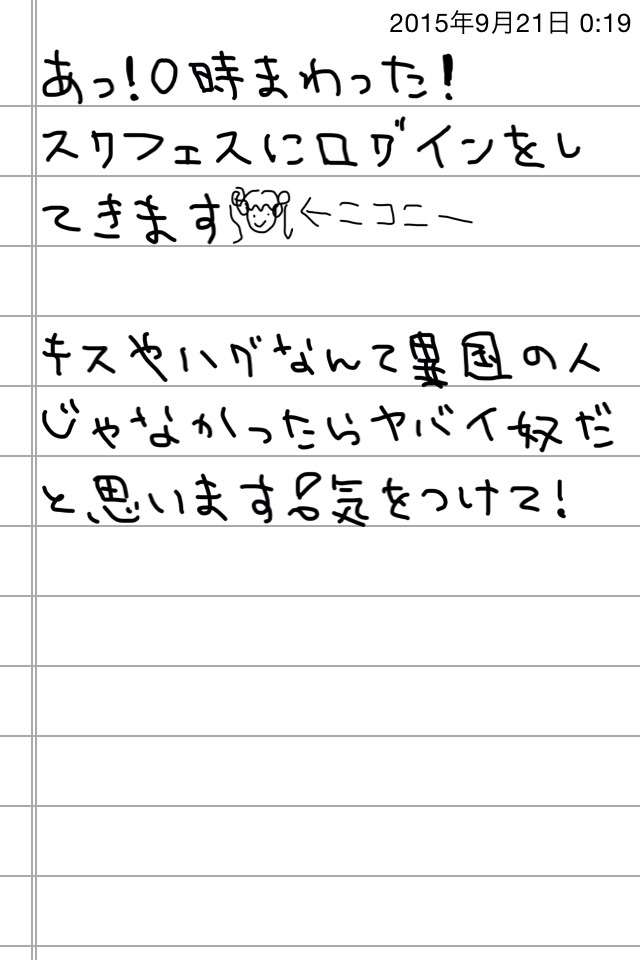 2015年9月21日 0:19
あっ!0時まわった!
スクフェスにログインをし
てきます←ニコニー
キスやハグなんて異国の人
じゃなかったらヤバイ奴だ
と思います!気をつけて!